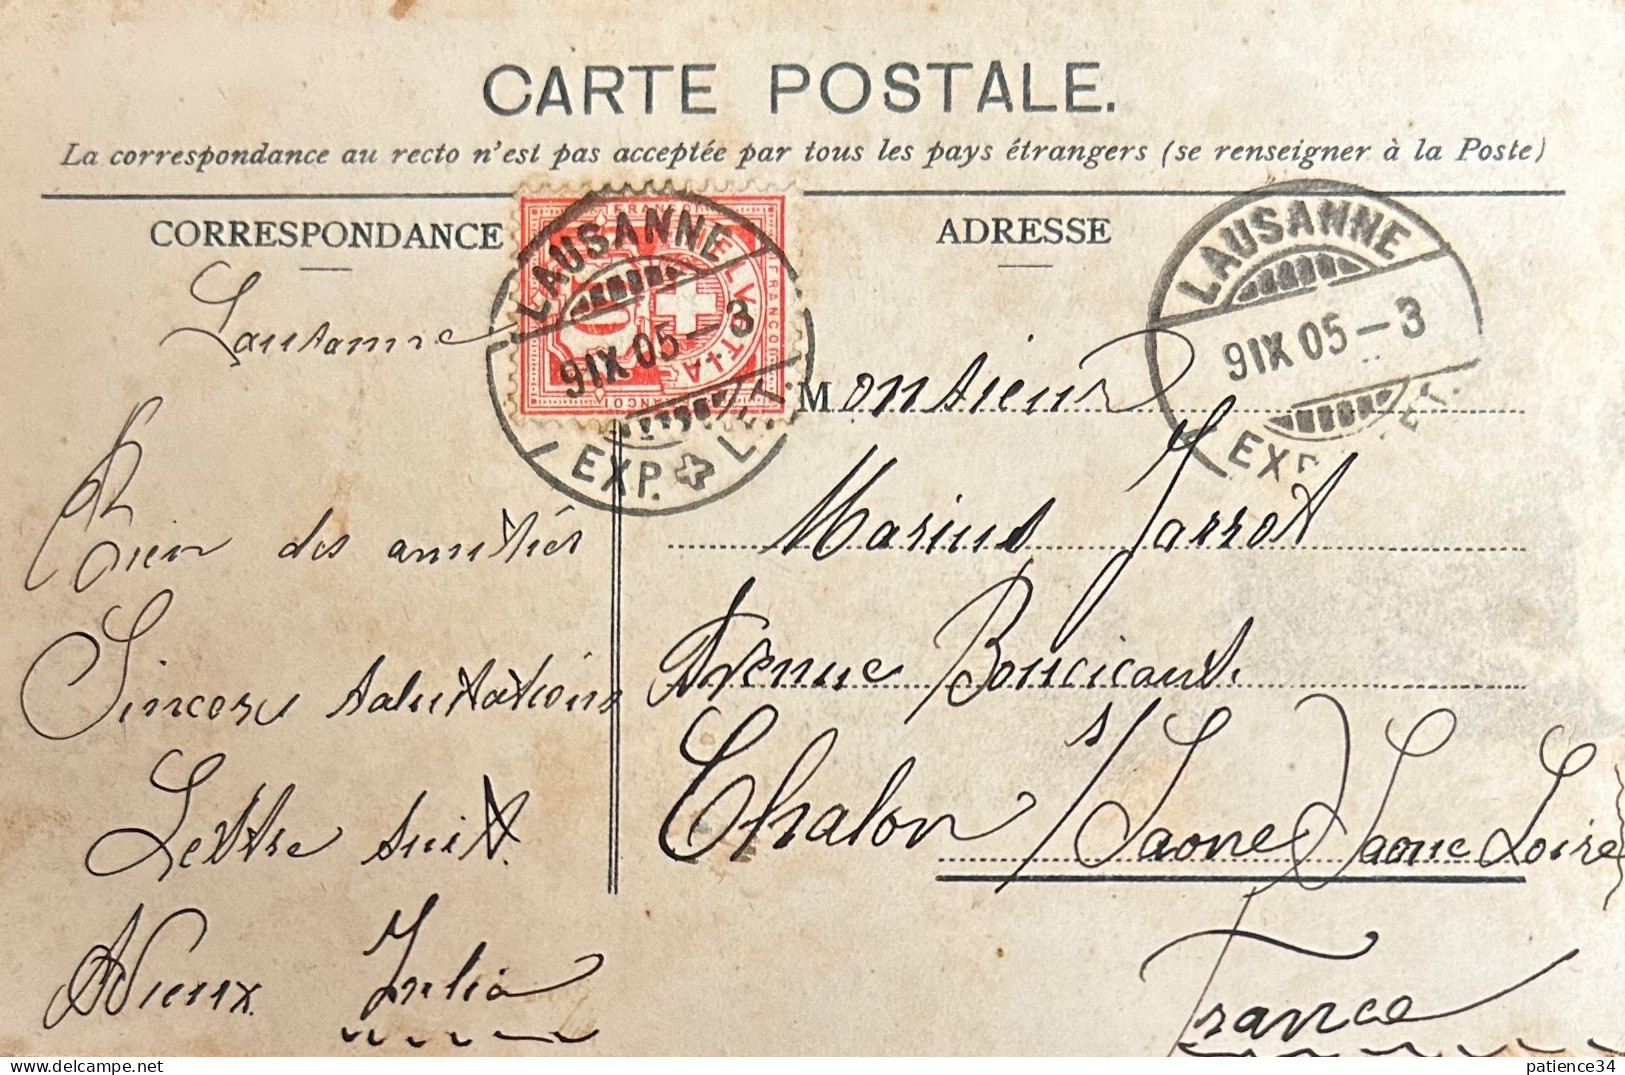 CARTE POSTALE.
La correspondance au recto n'est pas acceptée par tous les pays étrangers (se renseigner à la Poste)
CORRESPONDANCE
Lausanne
Bien des amitiés
Sincères salutations
Lettre suit.
Adieux Julia
FRANCO
HELVETIA
10
LAUSANNE
9 IX 05-3
EXP. LET.
ADRESSE
LAUSANNE
9 IX 05-3
EXP. LET.
Monsieur
Marius Jarrot
Avenue Boucicaut.
Chalon s/Saone Saone Loire
France
delcampe.net
patience34